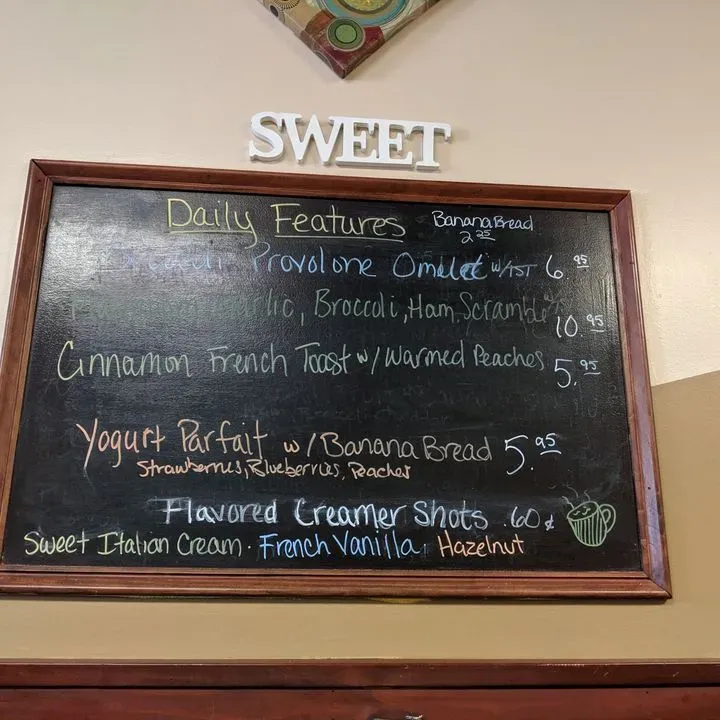 SWEET
Daily Features
Banana Bread
2.25
Provolone Omelet w/TST 6.95
Broccoli, Ham, Scramble
10.95
Cinnamon French Toast w/ Warmed Peaches 5.95
Yogurt Parfait w/ Banana Bread 5.95
Strawberries, Blueberries, Peaches
Flavored Creamer Shots .60¢
Sweet Italian Cream · French Vanilla, Hazelnut